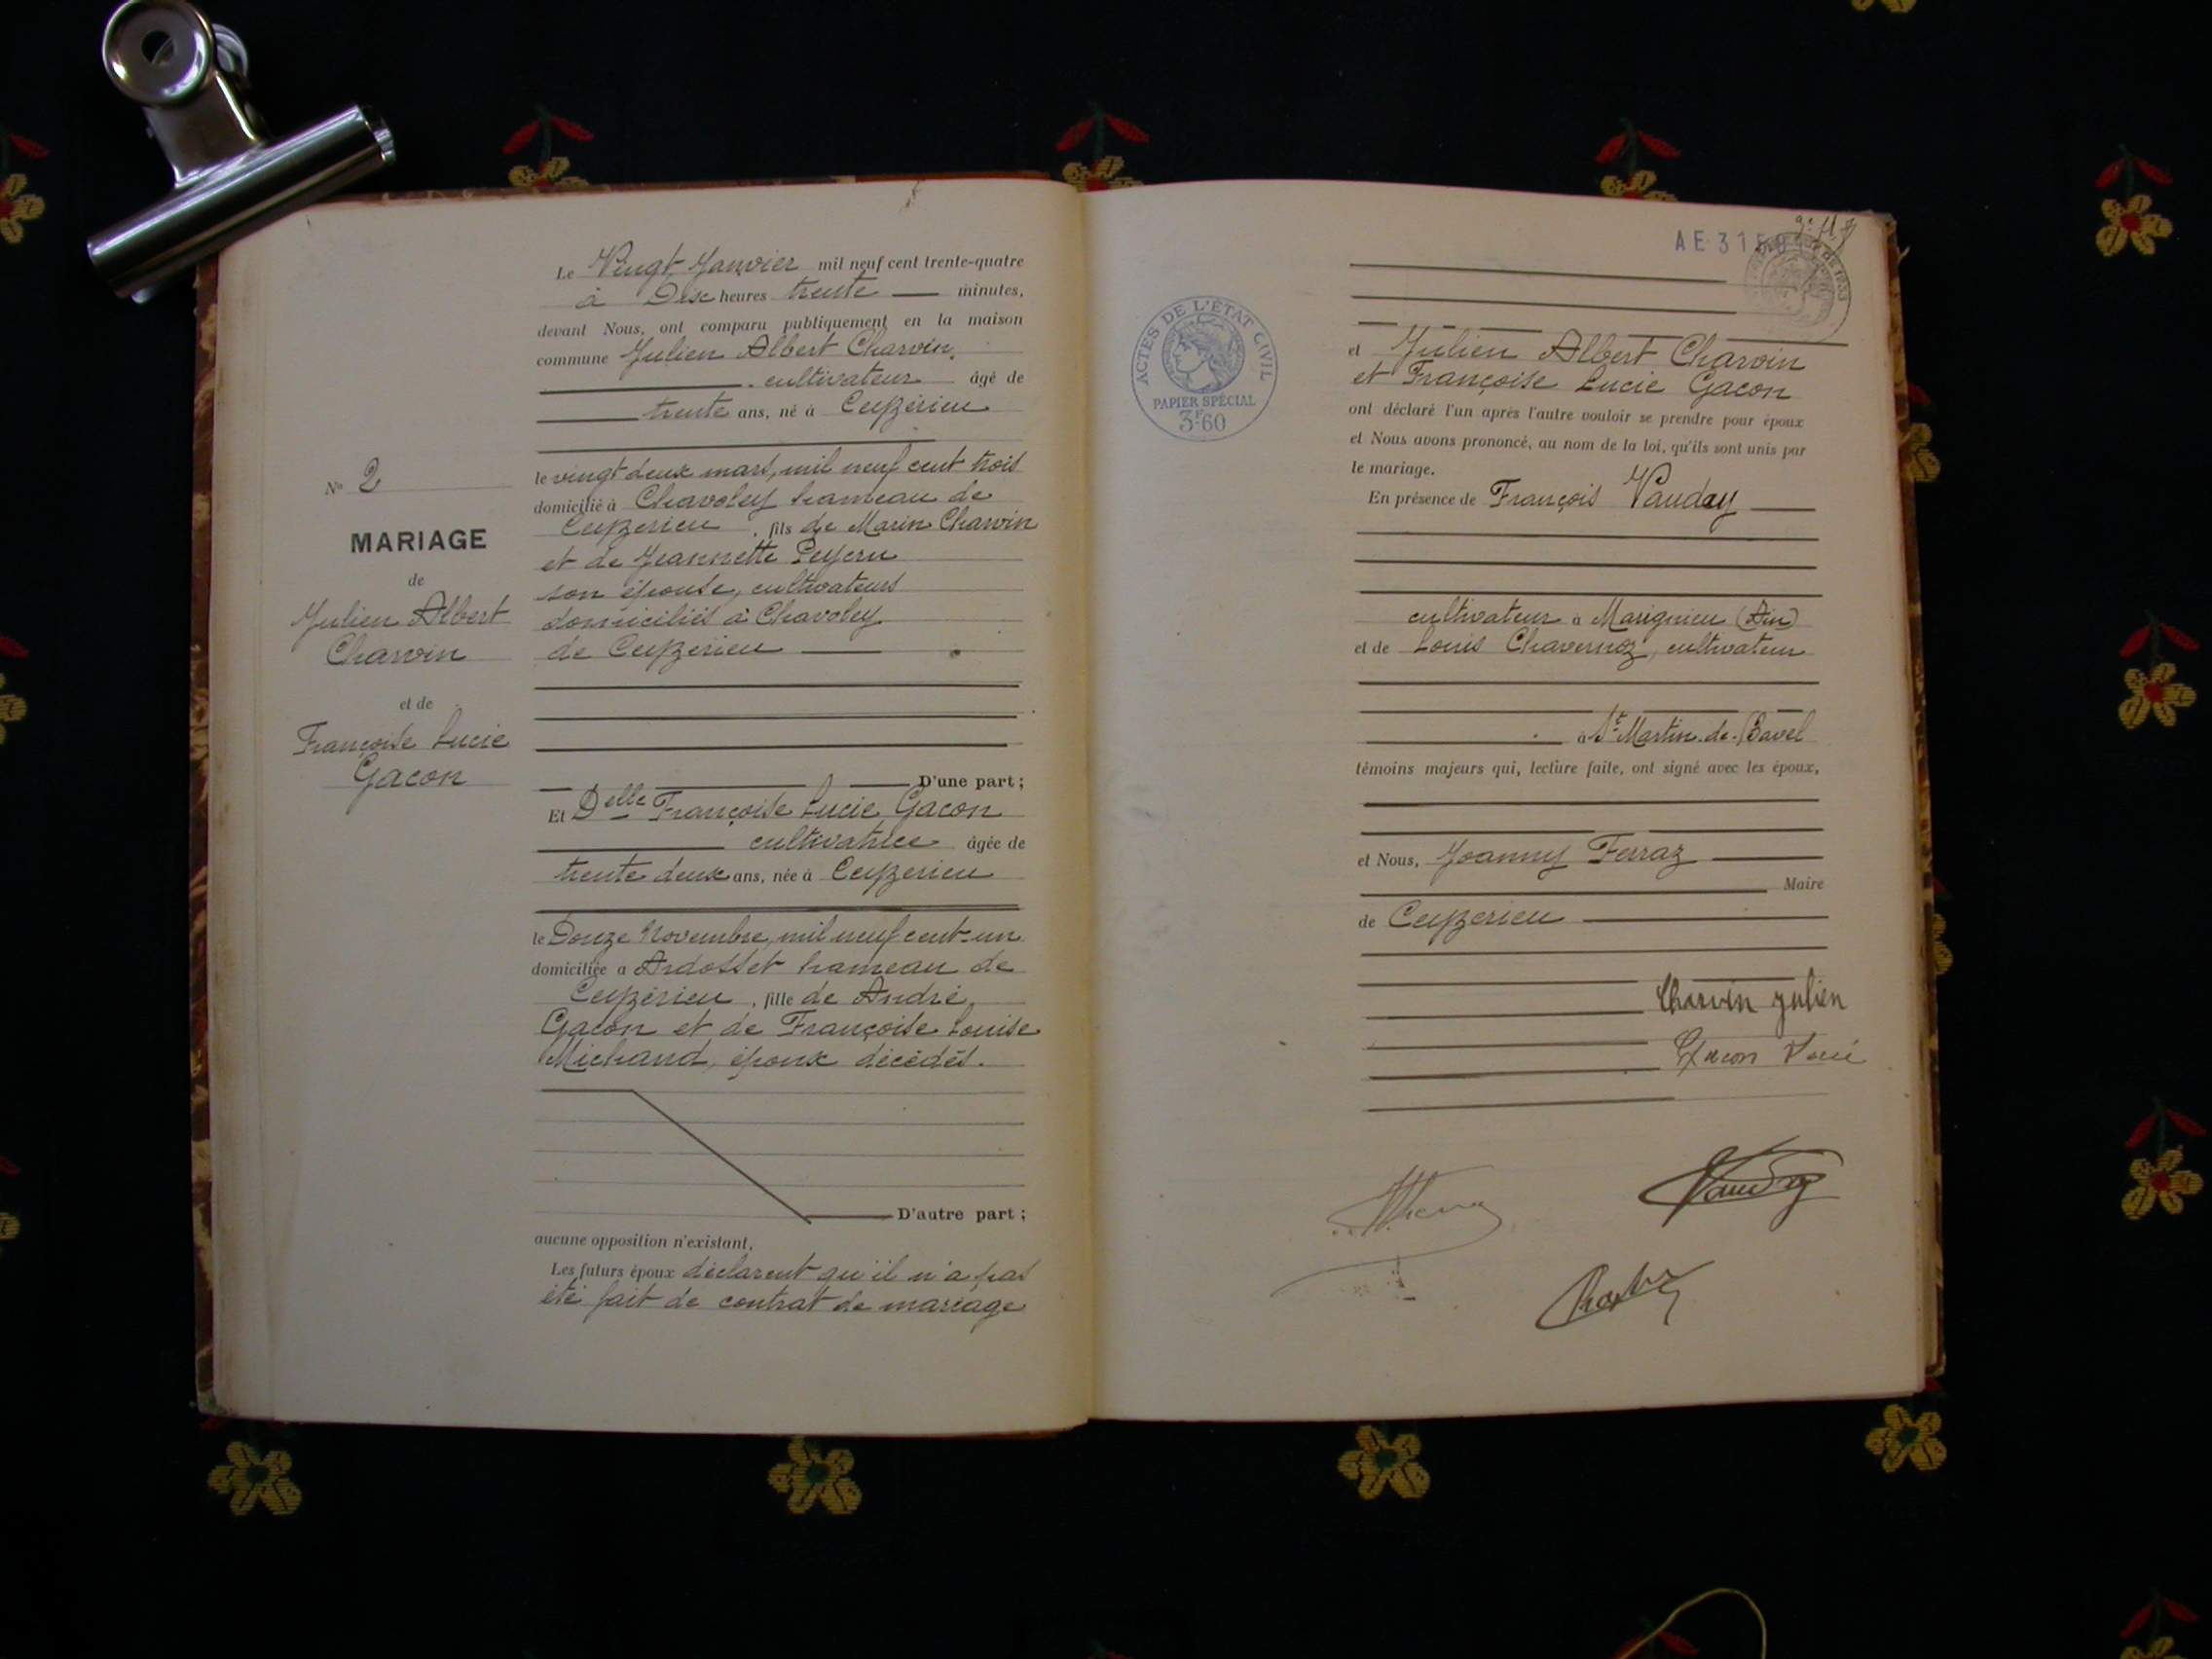 Le Vingt Janvier mil neuf cent trente-quatre
à Dix heures trente minutes,
devant Nous, ont comparu publiquement en la maison
commune Julien Albert Charvin,
cultivateur âgé de
trente ans, né à Ceyzérieu
le vingt deux mars, mil neuf cent trois
domicilié à Chavoley hameau de
Ceyzerieu, fils de Marin Charvin
et de Jeannette Peycru
son épouse, cultivateurs
domiciliés à Chavoley
de Ceyzérieu
D'une part;
Et Delle Françoise Lucie Gacon
cultivatrice âgée de
trente deux ans, née à Ceyzerieu
le Douze Novembre, mil neuf cent-un
domiciliée a Ardosset hameau de
Ceyzérieu, fille de André
Gacon et de Françoise Louise
Michaud, époux décédés.
D'autre part;
aucune opposition n'existant,
Les futurs époux déclarent qu'il n'a pas
été fait de contrat de mariage
No 2
MARIAGE
de
Julien Albert
Charvin
et de
Françoise Lucie
Gacon
AE 315
ACTES DE L'ÉTAT CIVIL
PAPIER SPÉCIAL
3F.60
et Julien Albert Charvin
et Françoise Lucie Gacon
ont déclaré l'un après l'autre vouloir se prendre pour époux
et Nous avons prononcé, au nom de la loi, qu'ils sont unis par
le mariage.
En présence de François Vauday
cultivateur à Marignieu (Ain)
et de Louis Chavernoz, cultivateur
à St Martin-de-Bavel
témoins majeurs qui, lecture faite, ont signé avec les époux,
et Nous, Joanny Ferraz
Maire
de Ceyzerieu
Charvin julien
Gacon
Vauday